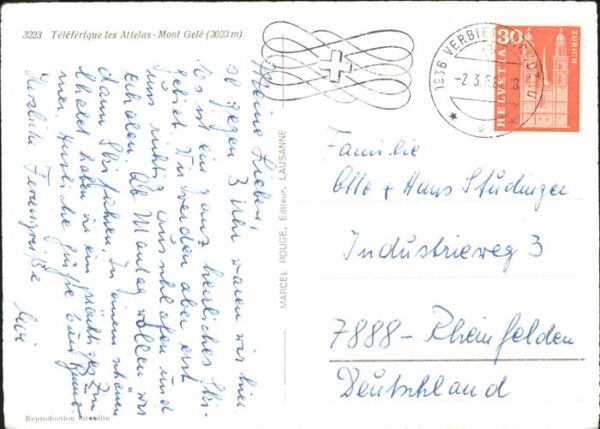 3223 Téléférique les Attelas - Mont Gelé (3023 m)
Meine Lieben,
so gegen 3 Uhr waren wir hier.
Es ist ein ganz herrliches Ski-
gebiet. Wir werden aber erst
mus richtig ausschlafen und
erholen. Ab Montag wollen wir
dann Skifahren. In einem schönen
Chalet haben wir ein prächtiges Zim-
mer. Herzliche Grüße
Herzliche Feriengrüße
MARCEL ROUGE, Editeur, LAUSANNE
Reproduction interdite
1936 VERBIER
-2.3.
HELVETIA
30
ZÜRICH
Familie
Otto + Hans Studinger
Industrieweg 3
7888 - Rheinfelden
Deutschland